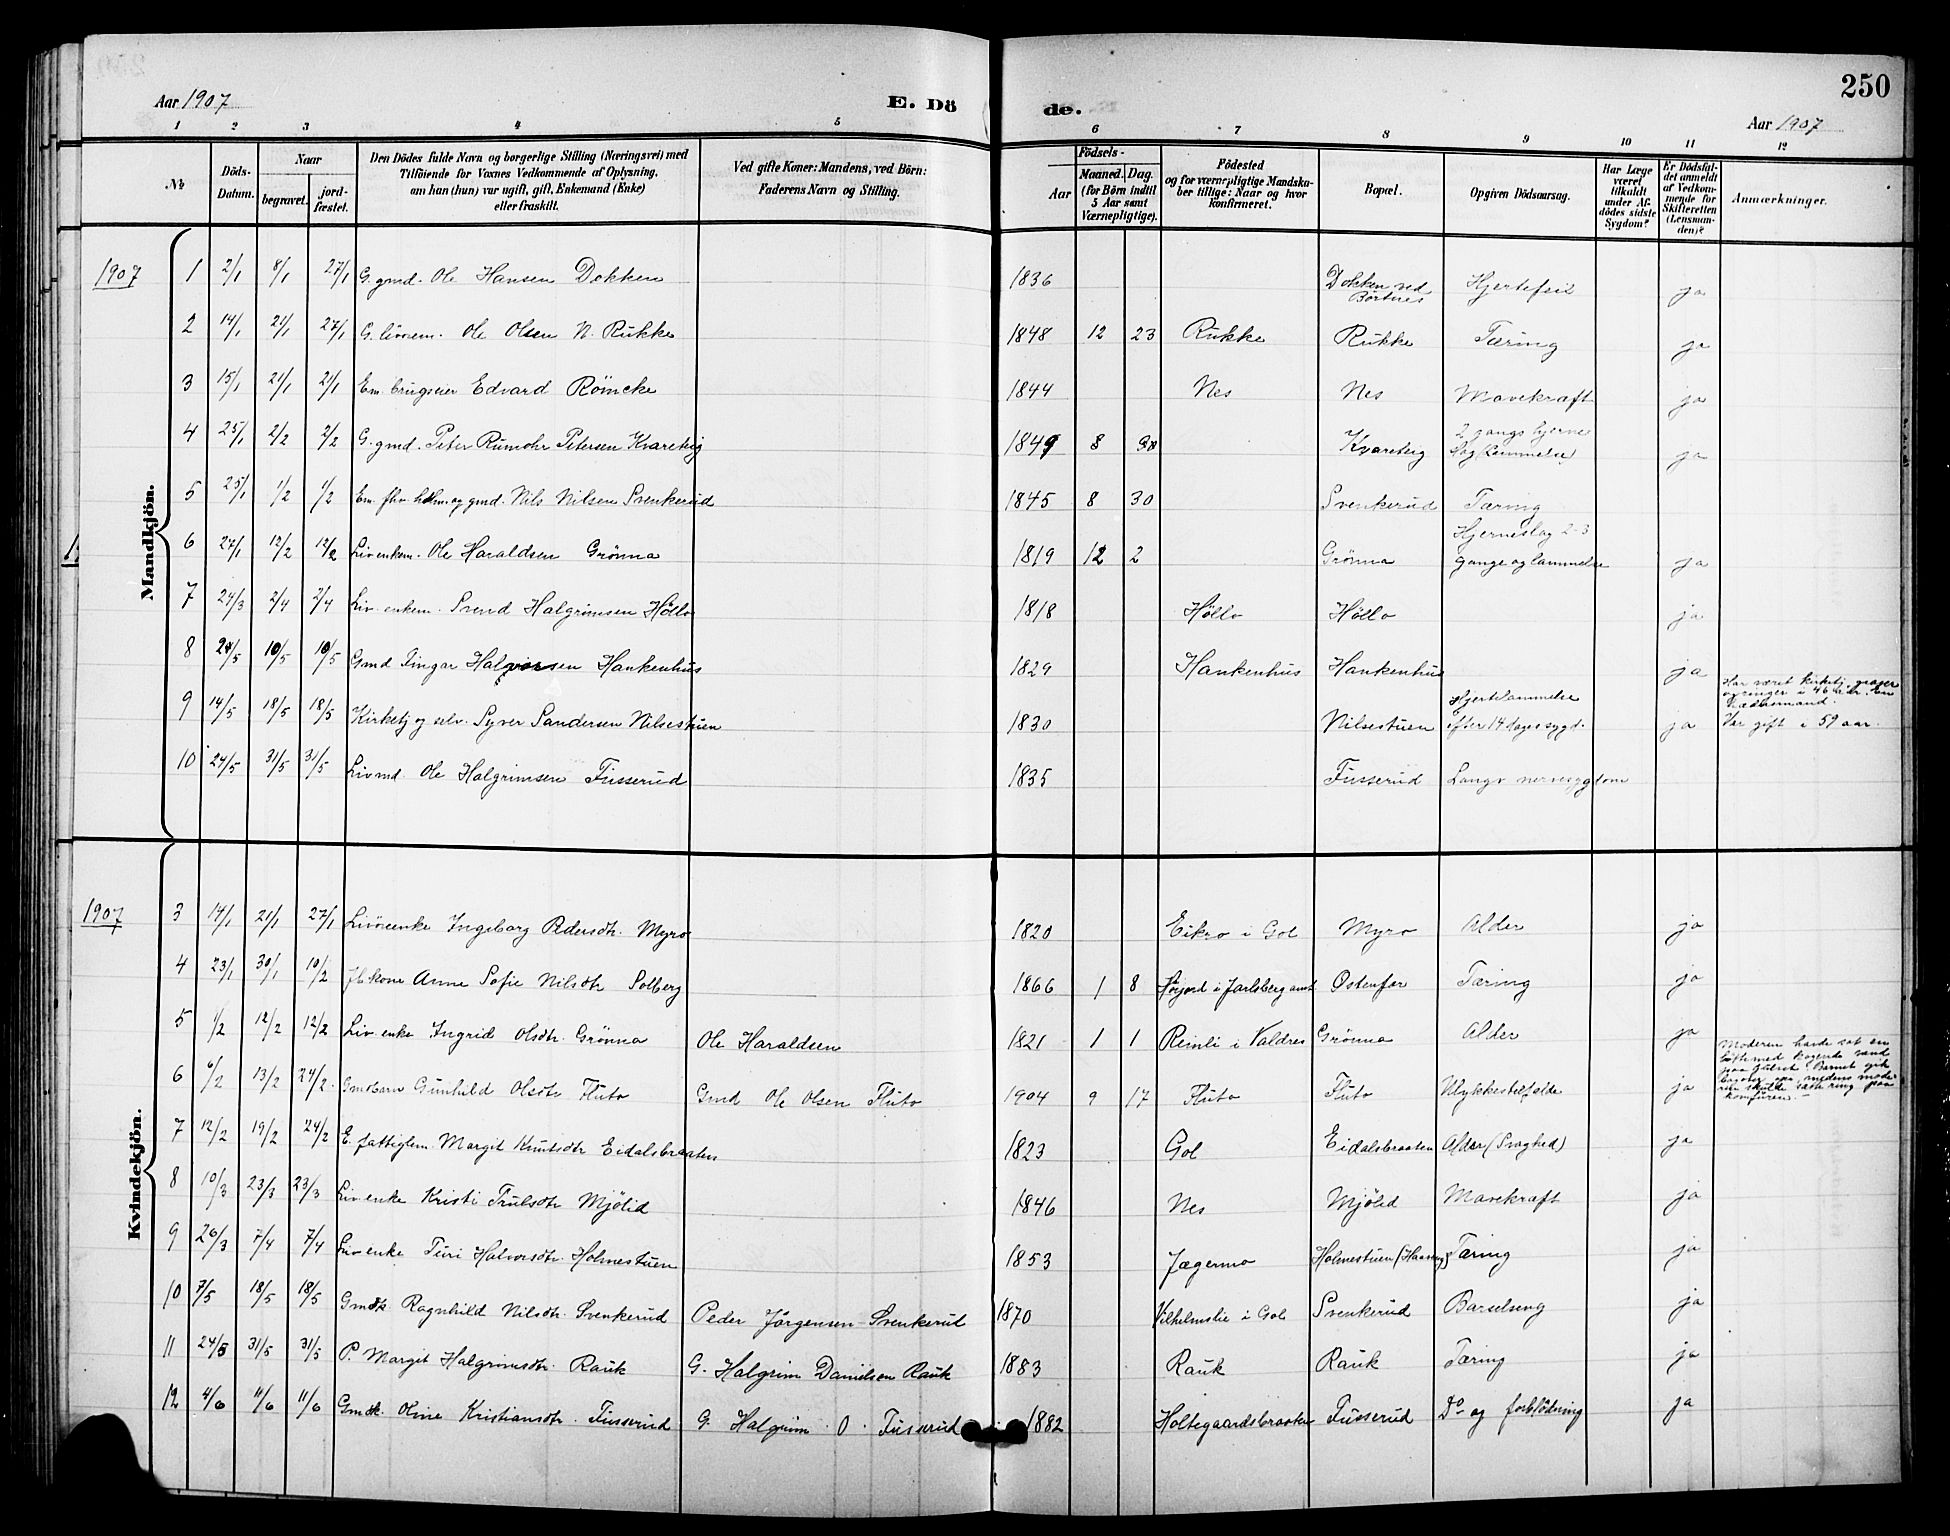 250
Aar 1907
E. Dö
de.
Aar 1907
1 2 3 4 5 6 7 8 9 10 11 12
№
Döds-
Datum.
Naar
begravet.
jord-
fæstet.
Den Dödes fulde Navn og borgerlige Stilling (Næringsvei) med
Tilföiende for Voxnes Vedkommende af Oplysning,
om han (hun) var ugift, gift, Enkemand (Enke)
eller fraskilt.
Ved gifte Koner: Mandens, ved Börn:
Faderens Navn og Stilling.
Aar
Födsels-
Maaned. Dag.
(for Börn indtil
5 Aar samt
Værnepligtige).
Födested
og for værnepligtige Mandska-
ber tillige: Naar og hvor
konfirmeret.
Bopæl.
Opgiven Dödsaarsag.
Har Læge
været
tilkaldt
under Af-
dödes sidste
Sygdom?
Er Dödsfal-
det anmeldt
af Vedkom-
mende for
Skifteretten
(Lensman-
den)?
Anmærkninger.
Mandkjön.
1907 1 2/1 8/1 27/1 G. gmd. Ole Hansen Dokken 1836 Dokken ved Börtnes Hjertefeil ja
2 14/1 21/1 27/1 Ole Olsen N. Rukke 1848 12 23 Rukke Rukke Tæring ja
3 15/1 21/1 21/1 Em. brugseier Edvard Römcke 1844 Nes Nes Mavekræft ja
4 25/1 2/2 2/2 G. gmd. Peter Rumohr Petersen Kvareteig 8 Kvareteig 2 gangs hjerne slag (Lammelse) ja
5 25/1 1/2 1/2 Em. fhv. gmd. Nils Nilsen Svenkerud 1845 8 30 Svenkerud Tæring
6 27/1 12/2 12/2 Liv. enkem. Ole Haraldsen Grönna 1819 12 2 Grönna Hjerneslag 2-3 gange og lammelse ja
7 24/3 2/4 2/4 Liv. enkem. Svend Halgrimsen Höllo 1818 Höllo Höllo ja
8 24/5 10/5 10/5 Gmd Fingar Halvorsen Hankenhus 1829 Hankenhus Hankenhus ja
9 14/5 18/5 18/5 Kirketj og selv. Syver Sandersen Nilsestuen 1830 Nilsestuen Hjertelammelse efter 14 dages sygd. ja Har været kirketj., graver og ringer i 46 aar. En hædersmand. Var gift i 59 aar.
10 24/5 31/5 31/5 Livmd. Ole Halgrimsen Fusserud 1835 Fusserud Langv nervesygdom
Kvindekjön.
1907 3 14/1 21/1 27/1 Livöreenke Ingeborg Pedersdtr. Myro 1820 Eikro i Gol Myro Alder ja
4 23/1 30/1 10/2 Anne Sofie Nilsdtr Solberg 1866 1 8 i Jarlsberg amt Ostenfor Tæring ja
5 1/2 12/2 12/2 Liv. enke Ingrid Olsdtr. Grönna Ole Haraldsen 1821 1 1 Reinli i Valdres Grönna Alder ja
6 6/2 13/2 24/2 Gmdbarn Gunhild Olsdtr Fluto Gmd Ole Olsen Fluto 1904 9 17 Fluto Fluto Ulykkestilfælde ja Moderen havde sat en bötte med kogende vand paa gulvet. Barnet gik bagover opi, medens moderen skulde sætte ring paa komfüren.
7 12/2 19/2 24/2 E. fattiglem Margit Knutsdtr Eidalsbraaten 1823 Gol Eidalsbraaten Alder (Svaghed) ja
8 10/3 23/3 23/3 Liv enke Kristi Trulsdtr Mjölid 1846 Nes Mjölid Mavekræft ja
9 26/3 7/4 7/4 Liv enke Turi Halvorsdtr. Holmestuen 1853 Jægermo Holmestuen Tæring ja
10 7/5 18/5 18/5 Gmdk. Ragnhild Nilsdtr. Svenkerud Peder Jörgensen Svenkerud 1870 Vilhelmslie i Gol Svenkerud Barselseng ja
11 24/5 31/5 31/5 P. Margit Halgrimsdtr. Rauk G. Halgrim Danielsen Rauk 1883 Rauk Rauk Tæring ja
12 4/6 11/6 11/6 Gmdk. Oline Kristiansdtr. Fusserud G. Halgrim O. Fusserud 1882 Holtegaardsbraaten Fusserud Do og forblödning ja